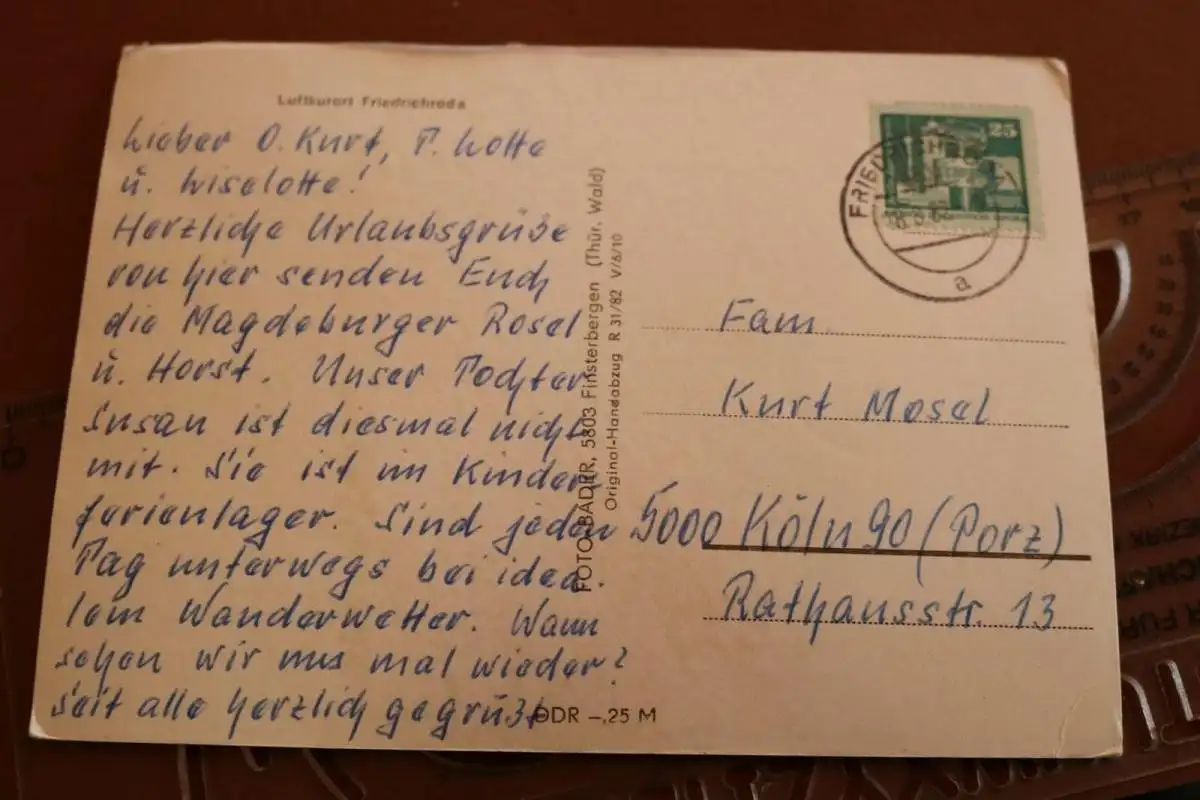 Luftkurort Friedrichroda
Lieber O. Kurt, T. Lotte
u. Liselotte!
Herzliche Urlaubsgrüße
von hier senden Euch
die Magdeburger Rosel
u. Horst. Unser Tochter
Susan ist diesmal nicht
mit. Sie ist im Kinder-
ferienlager. Sind jeden
Tag unterwegs bei idea-
lem Wanderwetter. Wann
sehen wir uns mal wieder?
Seit alle herzlich gegrüßt
FOTO-BÄDER, 5803 Finsterbergen (Thür. Wald)
Original-Handabzug R 31/82 V/6/10
DDR –,25 M
25
a
Fam.
Kurt Mosel
5000 Köln 90 (Porz)
Rathausstr. 13